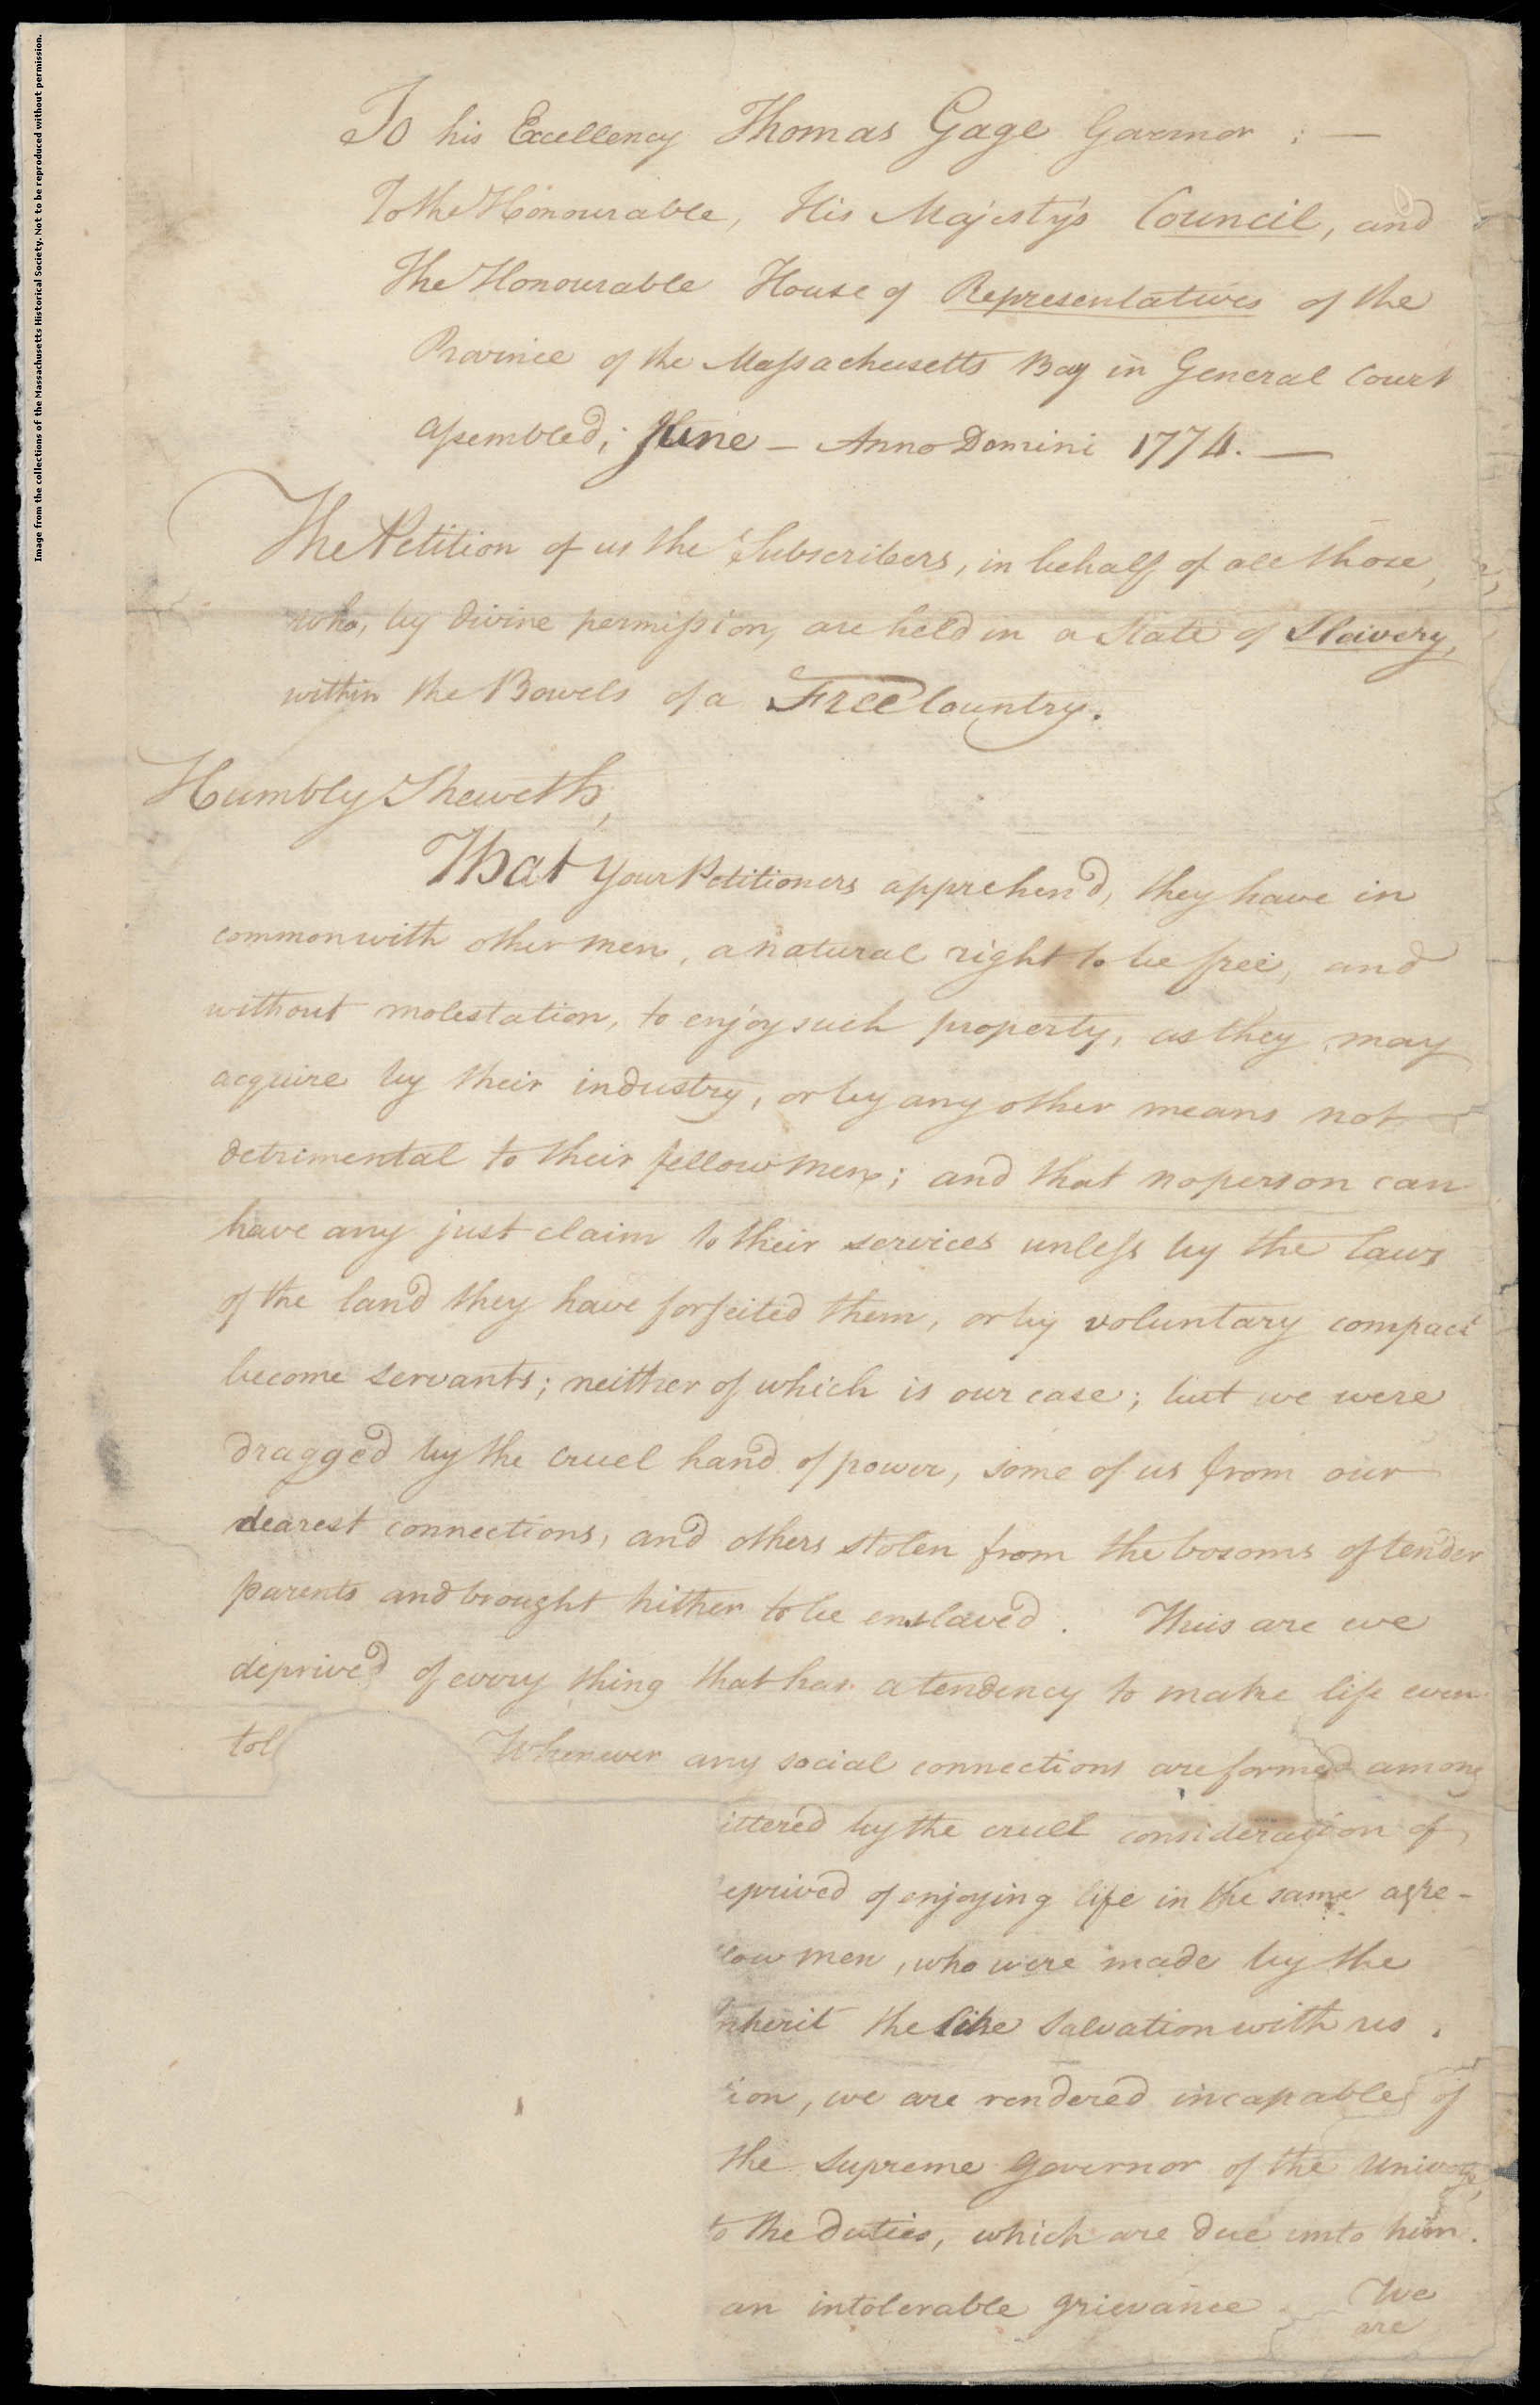 Image from the collections of the Massachusetts Historical Society. Not to be reproduced without permission.
To his Excellency Thomas Gage Governor : —
To the Honourable, His Majesty's Council, and
The Honourable House of Representatives of the
Province of the Massachusetts Bay in General Court
assembled; June — Anno Domini 1774. —
The Petition of us the Subscribers, in behalf of all those,
who, by divine permission, are held in a State of Slavery,
within the Bowels of a FREE Country.
Humbly Sheweth,
That Your Petitioners apprehend, they have in
common with other men, a natural right to be free, and
without molestation, to enjoy such property, as they may
acquire by their industry, or by any other means not
detrimental to their fellow men; and that no person can
have any just claim to their services unless by the laws
of the land they have forfeited them, or by voluntary compact
become servants; neither of which is our case; but we were
dragged by the cruel hand of power, some of us from our
dearest connections, and others stolen from the bosoms of tender
parents and brought hither to be enslaved. Thus are we
deprived of every thing that has a tendency to make life even
tol Whenever any social connections are formed among
ittered by the cruel consideration of
eprived of enjoying life in the same agre-
low men, who were made by the
nherit the like Salvation with us.
ion, we are rendered incapable of
the supreme Governor of the Universe,
to the duties, which are due unto him.
an intolerable grievance We
are